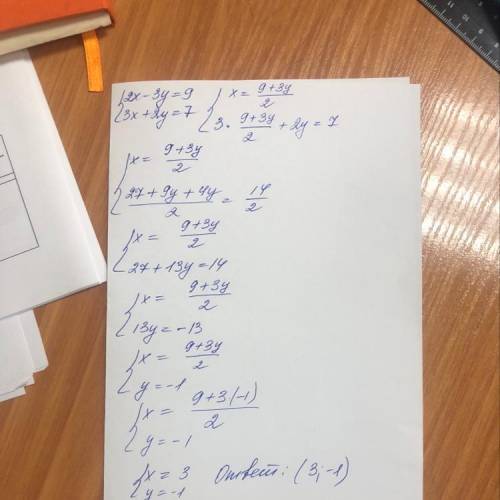 {2x-3y=9 {x= (9+3y)/2
{3x+2y=7 {3· (9+3y)/2 +2y=7
{x= (9+3y)/2
{(27+9y+4y)/2 = 14/2
{x= (9+3y)/2
{27+13y=14
{x= (9+3y)/2
{13y=-13
{x= (9+3y)/2
{y=-1
{x= (9+3(-1))/2
{y=-1
{x=3 Ответ: (3;-1)
{y=-1